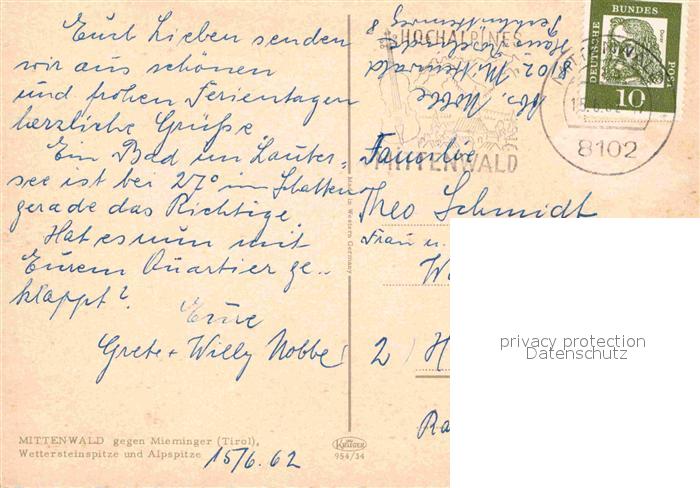 Eure Lieben senden
wir aus schönen
und frohen Ferientagen
herzliche Grüße.
Ein Bad im Lauter-
see ist bei 27° im Schatten
gerade das Richtige.
Hat es nun mit
Eurem Quartier ge-
klappt?
Eure
Grete + Willy Nobbe
MITTENWALD gegen Mieminger (Tirol),
Wettersteinspitze und Alpspitze
15/6.62
Made in Western Germany
KRÜGER
954/34
HOCHALPINES
MITTENWALD
Abs. Nobbe
8102 Mittenwald
Haus
8
DEUTSCHE BUNDESPOST
10
8102
Familie
Theo Schmidt
Frau u.
2) H
privacy protection
Datenschutz